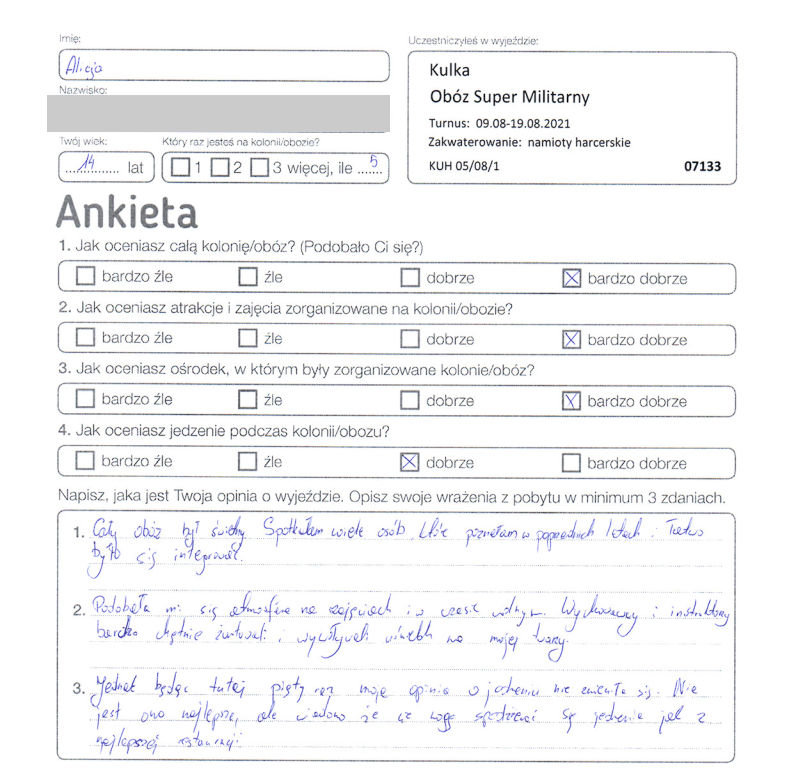 Imię:
Alicja
Nazwisko:
Twój wiek:
14 lat
Który raz jesteś na kolonii/obozie?
1 2 3 więcej, ile 5
Uczestniczyłeś w wyjeździe:
Kulka
Obóz Super Militarny
Turnus: 09.08-19.08.2021
Zakwaterowanie: namioty harcerskie
KUH 05/08/1 07133
Ankieta
1. Jak oceniasz całą kolonię/obóz? (Podobało Ci się?)
bardzo źle źle dobrze bardzo dobrze
2. Jak oceniasz atrakcje i zajęcia zorganizowane na kolonii/obozie?
bardzo źle źle dobrze bardzo dobrze
3. Jak oceniasz ośrodek, w którym były zorganizowane kolonie/obóz?
bardzo źle źle dobrze bardzo dobrze
4. Jak oceniasz jedzenie podczas kolonii/obozu?
bardzo źle źle dobrze bardzo dobrze
Napisz, jaka jest Twoja opinia o wyjeździe. Opisz swoje wrażenia z pobytu w minimum 3 zdaniach.
1. Cały obóz był świetny. Spotkałam wiele osób, które poznałam w poprzednich latach. Łatwo
było się integrować.
2. Podobała mi się atmosfera na zajęciach i w czasie wolnym. Wychowawcy i instruktorzy
bardzo chętnie żartowali i wywoływali uśmiech na mojej twarzy.
3. Jednak będąc tutaj piąty raz moja opinia o jedzeniu nie zmieniła się. Nie
jest ono najlepsze, ale wiadomo że nie mogę spodziewać się jedzenia jak z
najlepszej restauracji.